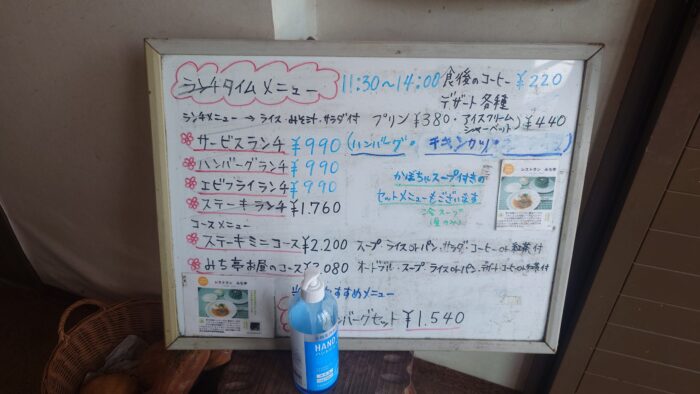 ランチタイムメニュー 11:30〜14:00 食後のコーヒー ¥220
デザート各種
ランチメニュー → ライス・みそ汁・サラダ付 プリン ¥380・アイスクリーム シャーベット) ¥440
サービスランチ ¥990 (ハンバーグ・チキンカツ・
ハンバーグランチ ¥990
エビフライランチ ¥990
ステーキランチ ¥1.760
かぼちゃスープ付きの
セットメニューもございます
冷スープ
コースメニュー
ステーキミニコース ¥2.200 スープ ライスorパン、サラダ コーヒーor紅茶付
みち亭お昼のコース ¥3,080 オードブル・スープ ライスorパン、デザート コーヒーor紅茶付
すすめメニュー
ハンバーグセット ¥1.540
レストラン みち亭
レストラン みち亭
HAND